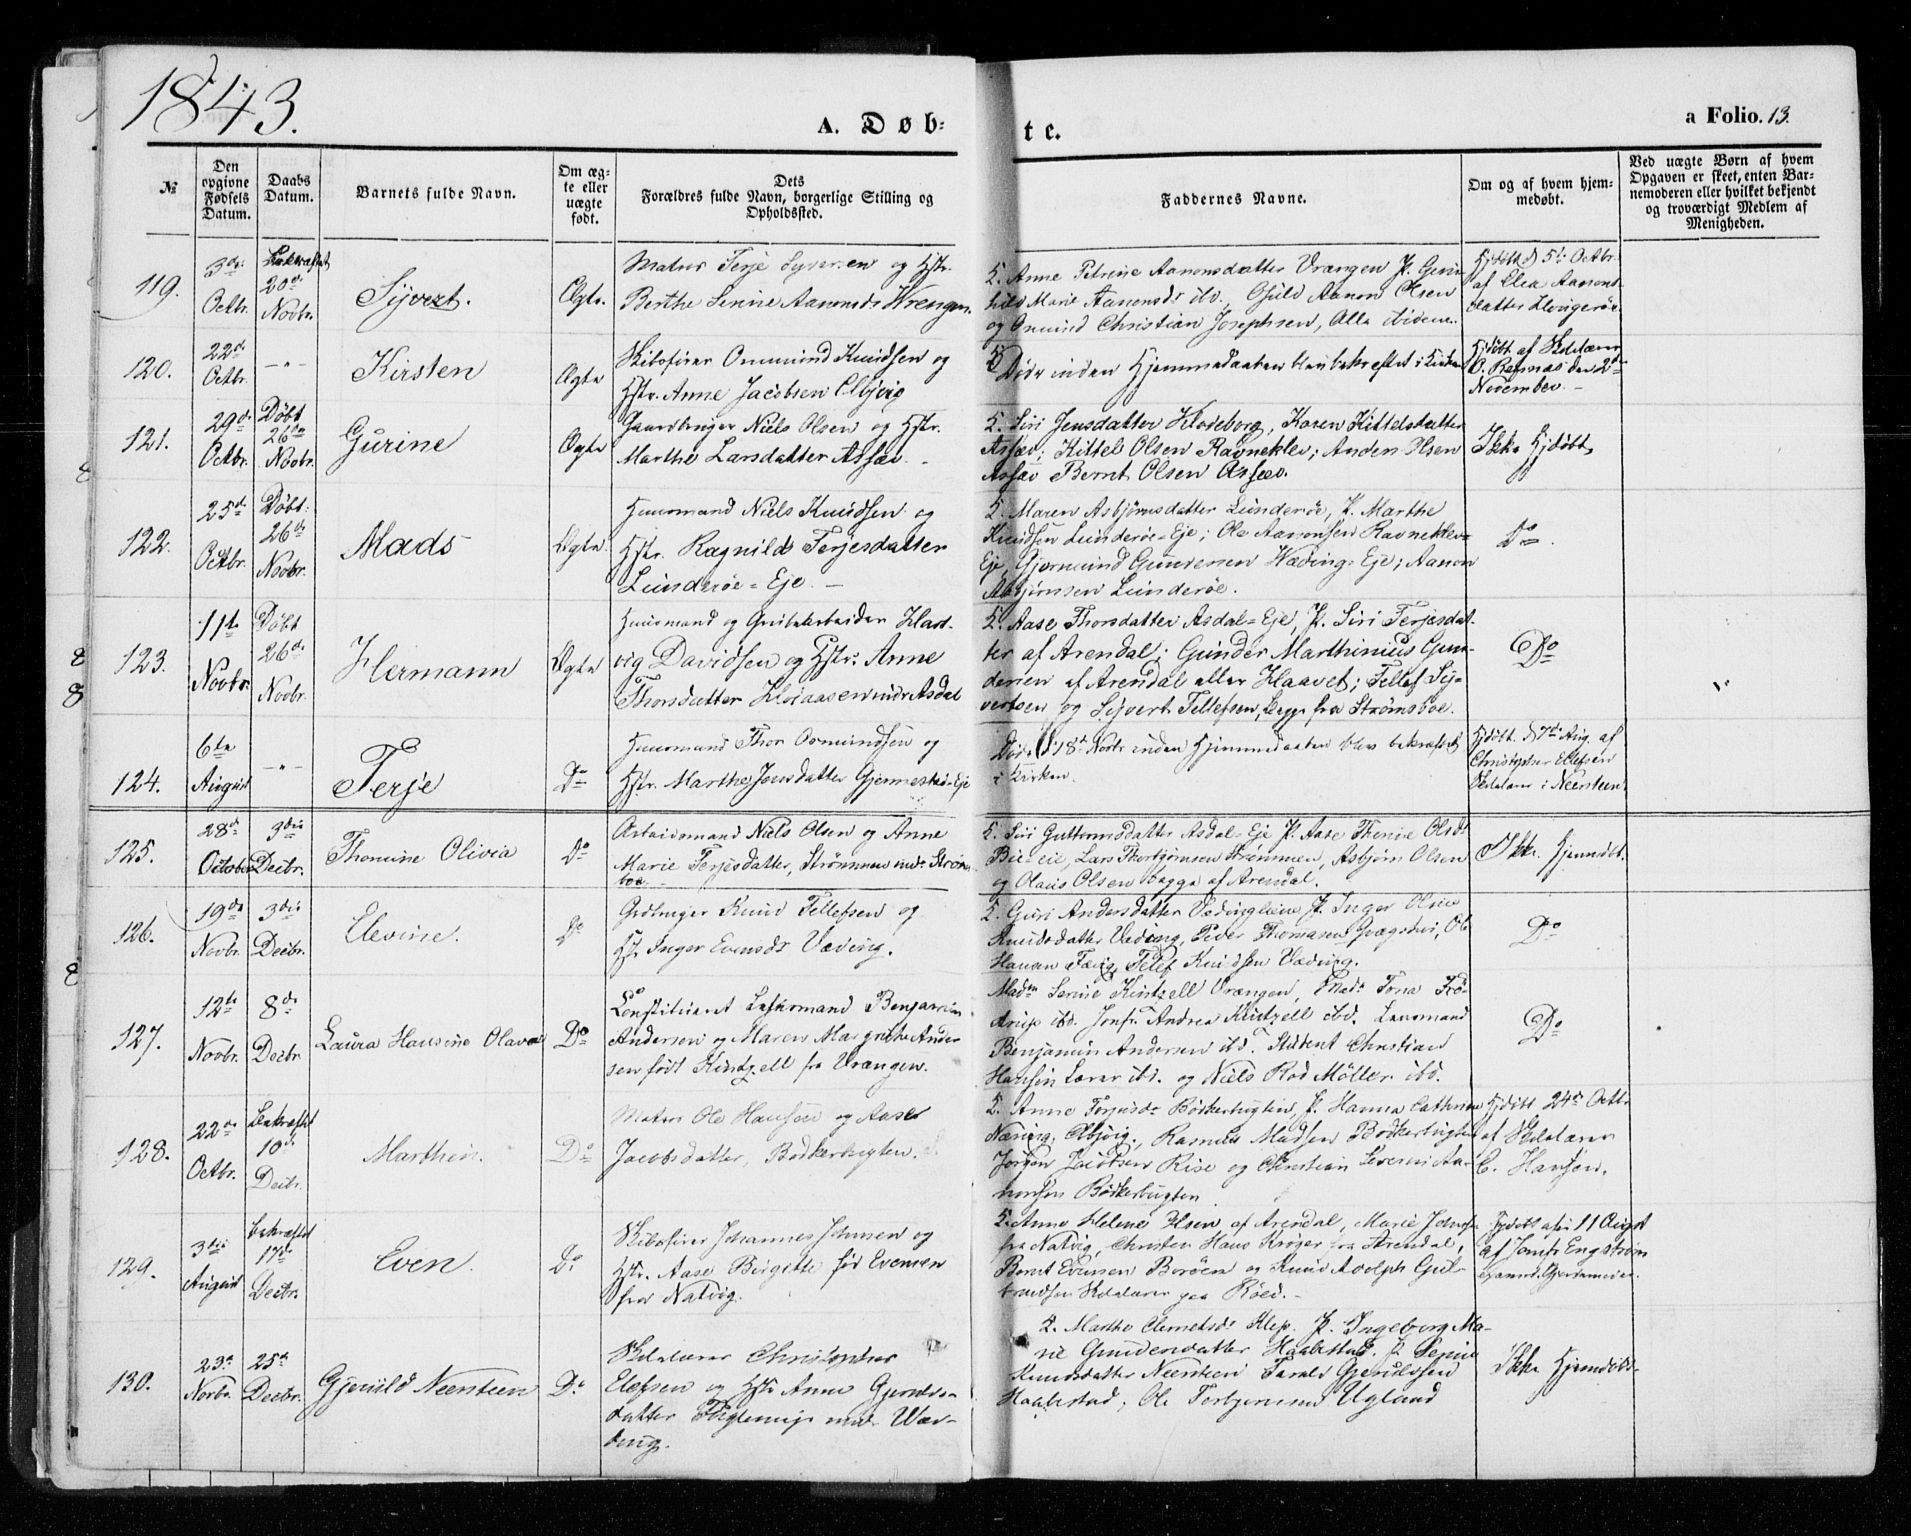 1843.
A. Døb-
te.
a Folio. 13.
№
Den opgivne Fødsels Datum.
Daabs Datum.
Barnets fulde Navn.
Om ægte eller uægte født.
Dets
Forældres fulde Navn, borgerlige Stilling og
Opholdssted.
Faddernes Navne.
Om og af hvem hjem-
medøbt.
Ved uægte Børn af hvem
Opgaven er skeet, enten Bar-
nemoderen eller hvilket bekjendt
og troværdigt Medlem af
Menigheden.
119.
3die
Octbr.
Bekræftet
20de
Novbr.
Syvert.
Ægte.
Matros Terje Syversen og Hstr.
Berthe Serine Aanonsds Wrengen.
Anne Petrine Aanonsdatter Vrangen P.
Marie Aanonsds ibd., Aanon Olsen
og Osmund Christian Josephsen, Alle ibidem.
Hjdøbt d 5te Octbr.
af Elea Aanons-
datter
120.
22de
Octbr.
—"—
Kirsten
Ægte
Skibsfører Osmund Knudsen og
Hstr. Anne Jacobsen Elbjvig
Døde inden Hjemmedaaben blev bekræftet i Kirken
Hjdøbt af Skolelærer
O. Resnæs den 2den
November. –
121.
29de
Octbr.
Døbt
26de
Novbr.
Gurine
Ægte
Gaardbruger Niels Olsen og Hstr.
Marthe Larsdatter Assæv. –
Siri Jensdatter Klodeborg, Karen Kittelsdatter
Assæv; Kittel Olsen Ravneklev; Anders Olsen
Assæv Bernt Olsen Assæv.
Ikke Hjdøbt
122.
25de
Octbr.
Døbt.
26de
Novbr.
Mads
Ægte.
Huusmand Niels Knudsen og
Hstr. Ragnild Terjesdatter
Lunderøe-Eje. –
Maren Asbjørnsdatter Lunderøe, P. Marthe
Knudsen Lunderøe-Eje; Ole Aanonsen Ravneklev-
Eje, Gjermund Gundersen Væding-Eje; Aanon
Asbjørnsen Lunderøe.
Do.
123.
11te
Novbr.
Døbt
26de
Novbr.
Hermann
Ægte
Huusmand og Grubearbeider Hart-
vig Davidsen og Hstr. Anne
Thorsdatter Høiaasen under Asdal
Aase Thorsdatter Asdal-Eje, P. Siri Terjesdat-
ter af Arendal; Gunder Marthinius Gun-
dersen af Arendal eller Haavet; Tellef Sy-
vertsen og Syvert Tellefsen, begge fra Strømsboe.
Do
124.
6te
August
—"—
Terje
Do
Huusmand Thor Osmundsen og
Hstr. Marthe Jensdatter Gjennestad-Eje
Døde d 18de Novbr inden Hjemmedaaben blev bekræftet
i Kirken.
Hjdøbt d 7de Aug. af
Christopher Ellefsen
Skolelærer i Neersteen.
125.
28de
October
3die
Decbr.
Thomine Olivia
Do
Arbeidsmand Niels Olsen og Anne
Marie Terjesdatter, Strømmen under Strøms-
boe –
Siri Guttormsdatter Asdal-Eje, P. Aase Thenie Olsds
Bie-eie, Lars Thorbjørnsen Strømmen, Asbjørn Olsen
og Olaus Olsen begge af Arendal.
Ikke Hjemdøbt.
126.
19de
Novbr.
3die
Decbr.
Elevine.
Do
Grdbruger Knud Tellefsen og
Hst. Inger Evensds Væding.
Guri Andersdatter P. Inger Oline
Knudsdatter Væding, Peder Thomasen
Tellef Knudsen Væding.
Do
127.
12te
Novbr.
8de
Decbr.
Laura Hansine Olava
Do
Constitueret Lensmand Benjamin
Andersen og Maren Margrethe Ander-
sen født Kintzell fra Vrangen.
Madm Serine Kintzell Vrængen, Mad. Tona
ibd. Jomfr. Andrea Kintzell ibd. Lensmand
Benjamin Andersen ibd. Student Christian
Hansen Lærer ibd. og Niels Rod Møller ibd.
Do
128.
22de
Octbr.
Bekræftet
10de
Decbr.
Marthin.
Do
Matros Ole Hansen og Aase
Jacobsdatter, Bødkerbugten.
Anne Terjesds Bødkerbugten, P. Hanna Cathrine
Næsvig, Rasmus Madsen Bødkerbugten
Jørgen Jacobsen Rise og Christian Severin Aa-
nonsen Bødkerbugten
Hjdøbt 24de Octbr
af Skolelærer
C. Hansen.
129.
3die
August
Bekræftet
17de
Decbr.
Even.
Do.
Skibsfører Johannes Johnsen og
Hstr. Aase Birgitte fød Evensen
fra Natvig.
Anne Helene Olsen af Arendal, Marie
fra Natvig, Christen Hans Krøger fra Arendal,
Bernt Evensen Borøen og Knud Adolph Gul-
brandsen Skolelærer paa Røed. –
Hjdøbt 11 August
af Jomfr Engstrøm
examnt. Gjordemoder.
130.
23de
Novbr.
25de
Decbr.
Gjeruld Neersteen
Do
Skolelærer Christopher
Elefsen og Hstr Anne Gjeruls-
datter under Væ-
ding.
Marthe Clemetsds Klep. P. Ingeborg Ma-
rie Gundersdatter Haabestad. P. Serine
Knudsdatter Neersteen Tarald Gjerulssen
Haabestad; Ole Torbjørnsen Ugland
Ikke Hjemdøbt